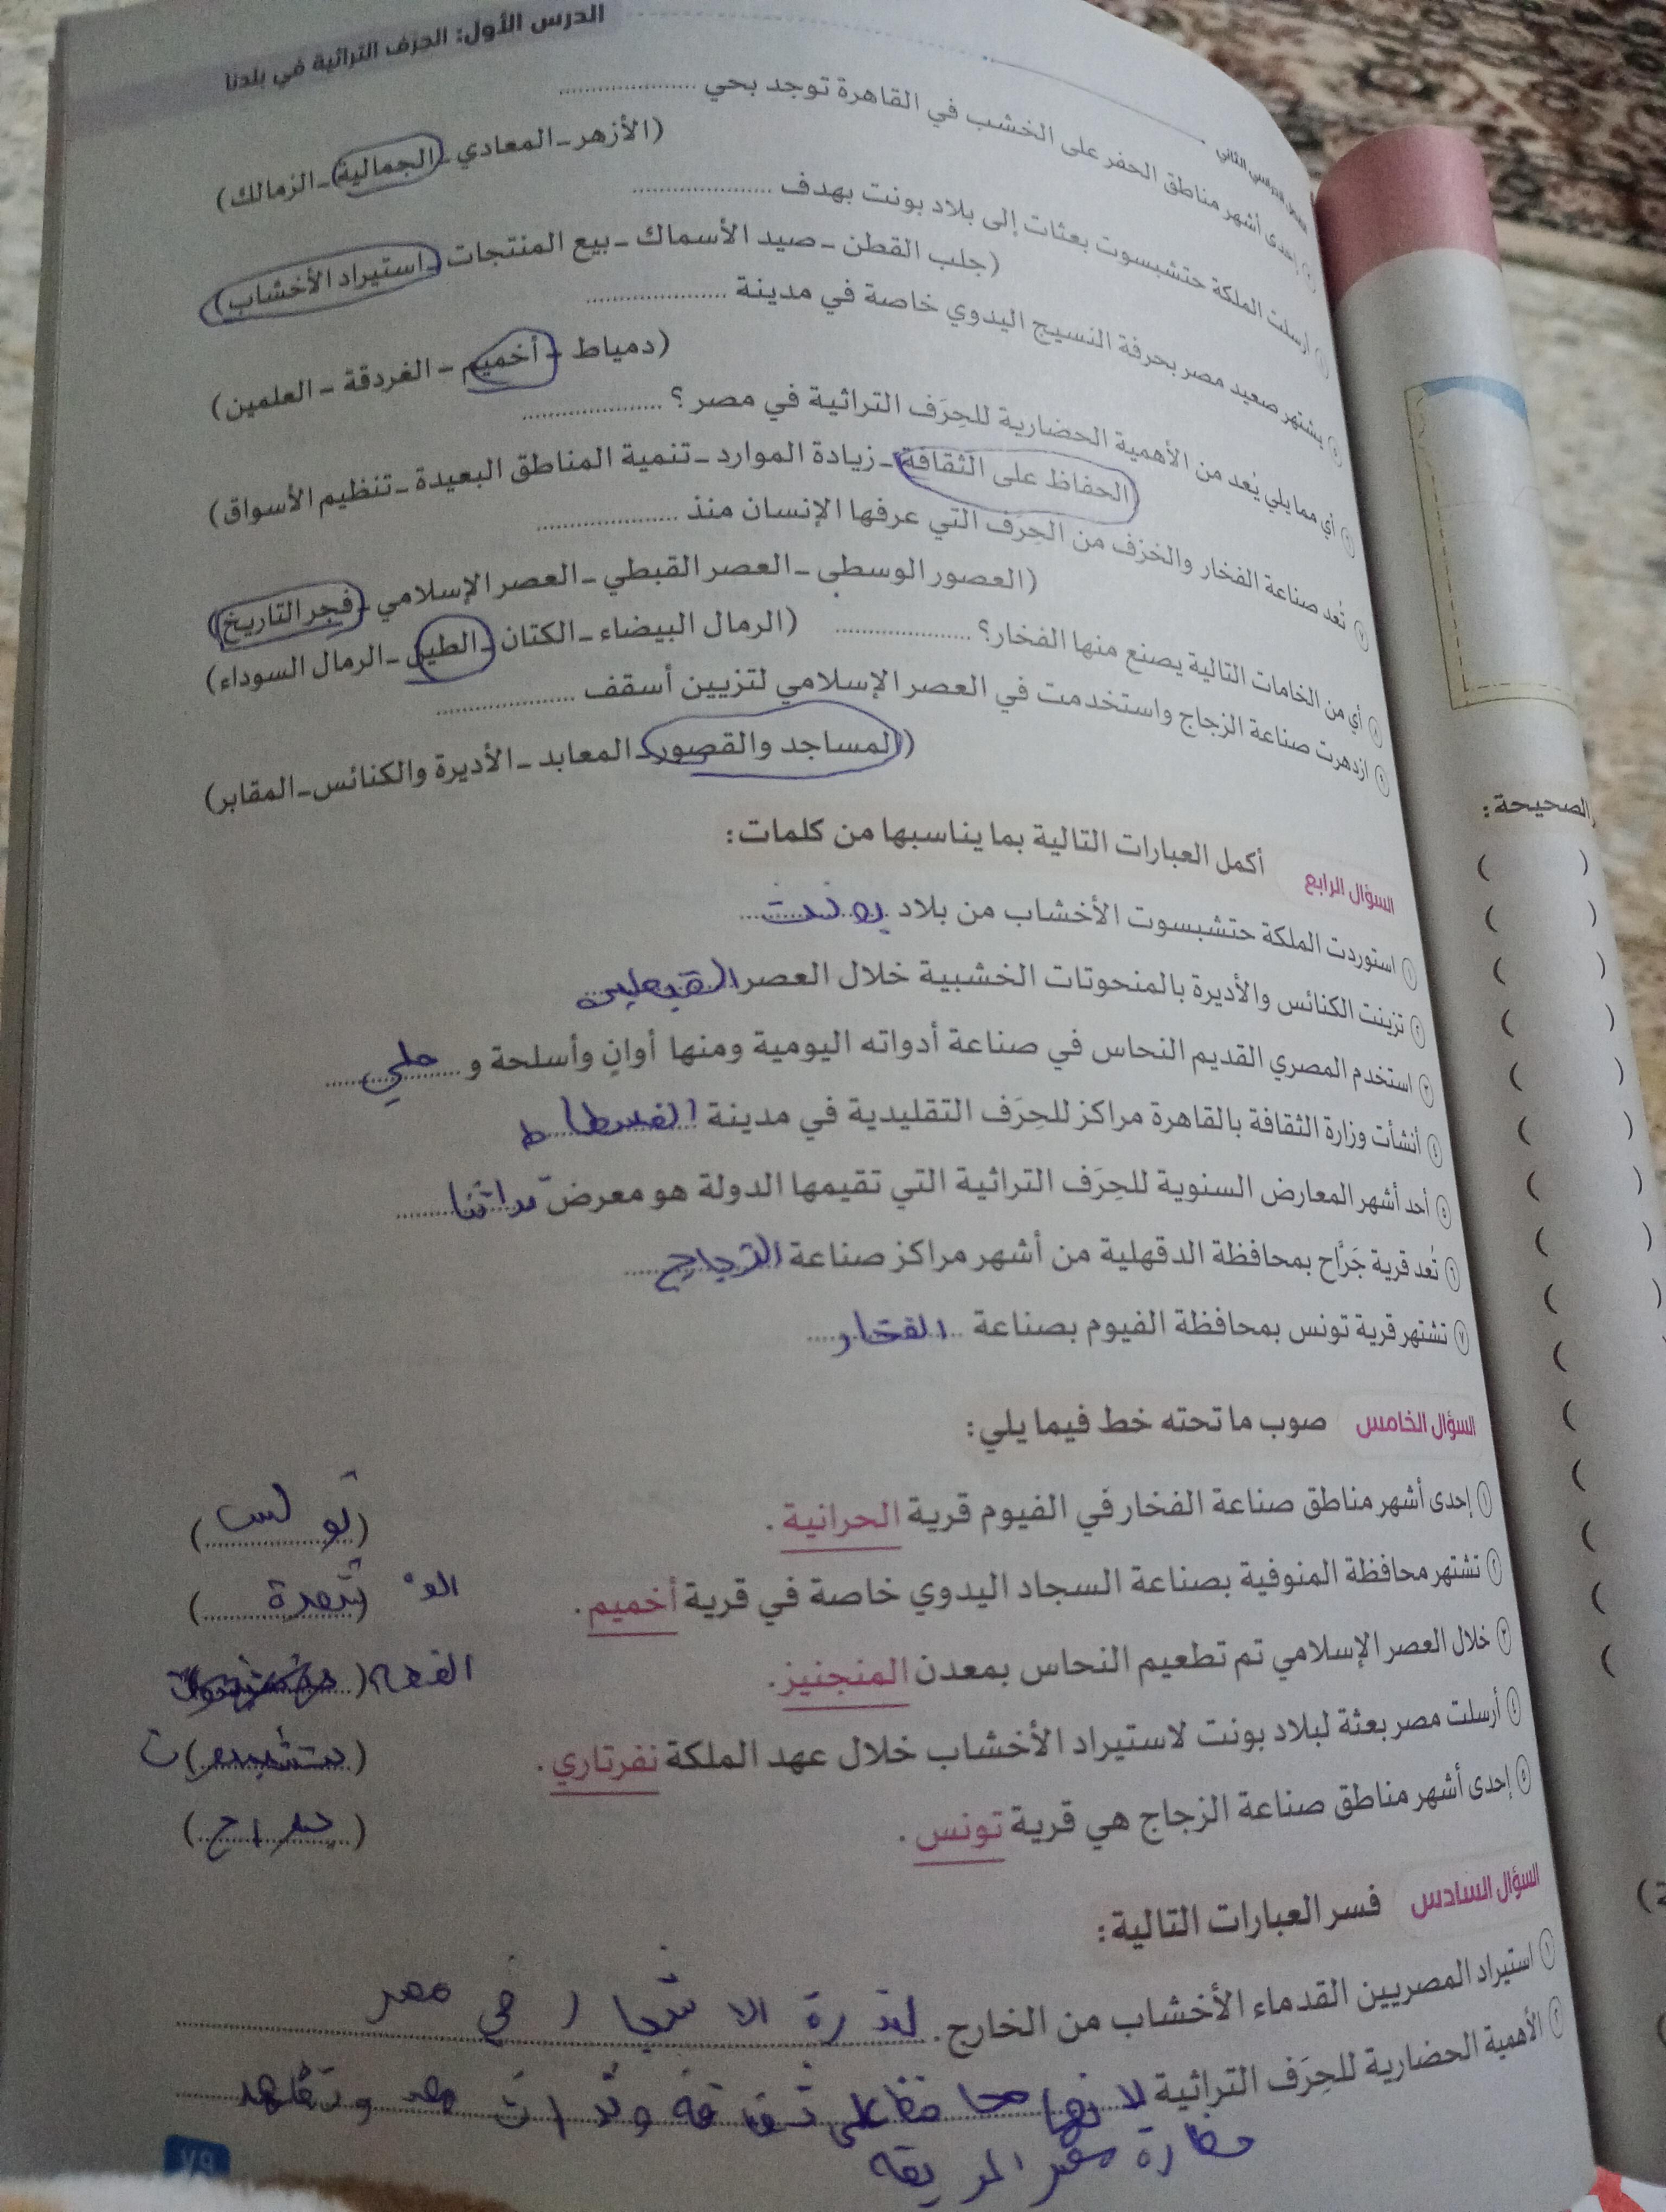 الدرس الأول: الحِرَف التراثية في بلدنا
إحدى أشهر مناطق الحفر على الخشب في القاهرة توجد بحي ....................
(الأزهر – المعادي – الجمالية – الزمالك)
أرسلت الملكة حتشبسوت بعثات إلى بلاد بونت بهدف ....................
(جلب القطن – صيد الأسماك – بيع المنتجات – استيراد الأخشاب)
٥ يشتهر صعيد مصر بحرفة النسيج اليدوي خاصة في مدينة ....................
(دمياط – أخميم – الغردقة – العلمين)
٦ أي مما يلي يُعد من الأهمية الحضارية للحِرَف التراثية في مصر؟ ....................
(الحفاظ على الثقافة – زيادة الموارد – تنمية المناطق البعيدة – تنظيم الأسواق)
٧ تُعد صناعة الفخار والخزف من الحِرَف التي عرفها الإنسان منذ ....................
(العصور الوسطى – العصر القبطي – العصر الإسلامي – فجر التاريخ)
٨ أي من الخامات التالية يصنع منها الفخار؟ .................... (الرمال البيضاء – الكتان – الطين – الرمال السوداء)
٩ ازدهرت صناعة الزجاج واستخدمت في العصر الإسلامي لتزيين أسقف ....................
(المساجد والقصور – المعابد – الأديرة والكنائس – المقابر)
السؤال الرابع أكمل العبارات التالية بما يناسبها من كلمات:
١ استوردت الملكة حتشبسوت الأخشاب من بلاد بونت
٢ تزينت الكنائس والأديرة بالمنحوتات الخشبية خلال العصر
٣ استخدم المصري القديم النحاس في صناعة أدواته اليومية ومنها أوانٍ وأسلحة و حلي
٤ أنشأت وزارة الثقافة بالقاهرة مراكز للحِرَف التقليدية في مدينة الفسطاط
٥ أحد أشهر المعارض السنوية للحِرَف التراثية التي تقيمها الدولة هو معرض تراثنا
٦ تُعد قرية جَرَّاح بمحافظة الدقهلية من أشهر مراكز صناعة الزجاج
٧ تشتهر قرية تونس بمحافظة الفيوم بصناعة الفخار
السؤال الخامس صوب ما تحته خط فيما يلي:
١ إحدى أشهر مناطق صناعة الفخار في الفيوم قرية الحرانية. (تونس)
٢ تشتهر محافظة المنوفية بصناعة السجاد اليدوي خاصة في قرية أخميم.
٣ خلال العصر الإسلامي تم تطعيم النحاس بمعدن المنجنيز. الفضة
٤ أرسلت مصر بعثة لبلاد بونت لاستيراد الأخشاب خلال عهد الملكة نفرتاري.
٥ إحدى أشهر مناطق صناعة الزجاج هي قرية تونس. (جراح)
السؤال السادس فسر العبارات التالية:
١ استيراد المصريين القدماء الأخشاب من الخارج. لندرة الاشجار في مصر
٢ الأهمية الحضارية للحِرَف التراثية لانها تحافظ على ثقافة وتراث مصر وتظهر
حضارة مصر العريقة
٧٩
الصحيحة: